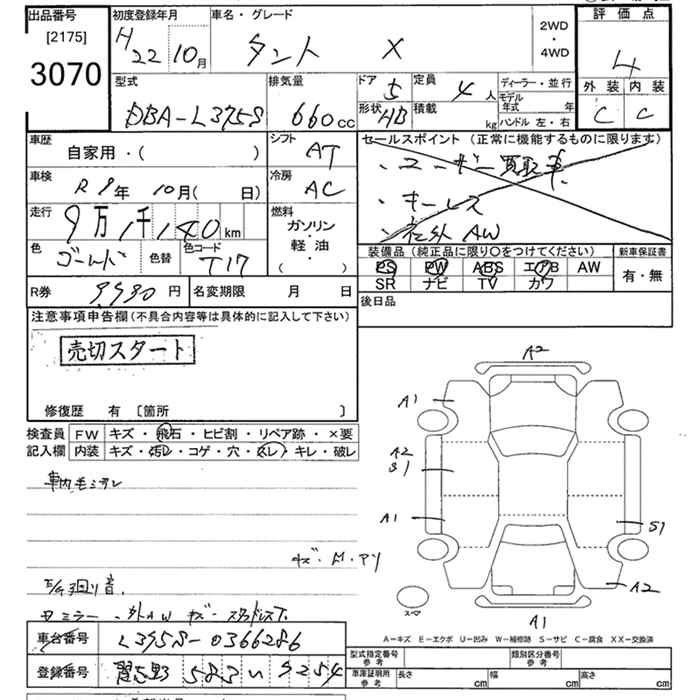 出品番号
[2175]
3070
初度登録年月
H 22 10月
車名・グレード
タント X
2WD
・
4WD
評価点
4
外装 内装
C C
型式
DBA-L375S
排気量
660cc
ドア 5
形状 HB
定員 4人
積載 kg
ディーラー・並行
モデル年式 年
ハンドル 左・右
車歴
自家用・( )
シフト
AT
車検
R 9年 10月( 日)
冷房
AC
走行
9万1千140km
燃料
ガソリン
軽油・
( )
色
ゴールド
色替
色コード
T17
セールスポイント (正常に機能するものに限ります)
・ユーザー買取車
・キーレス
・社外AW
装備品 (純正品に限り○をつけてください)
PS PW ABS エアB AW
SR ナビ TV カワ
新車保証書
有・無
R券 9,930円
名変期限 月 日
後日品
注意事項申告欄(不具合内容等は具体的に記入して下さい)
売切スタート
修復歴 有 [箇所 ]
検査員
記入欄
FW キズ・飛石・ヒビ割・リペア跡・×要
内装 キズ・汚レ・コゲ・穴・スレ・キレ・破レ
A2
A1
A2
S1
A1
S1
A2
スペア
A1
A-キズ E-エクボ U-凹み W-補修跡 S-サビ C-腐食 XX-交換済
車台番号
L375S-0366286
登録番号
583 い 9254
型式指定番号
参考
類別区分番号
参考
車庫証明用
参考
長さ cm
幅 cm
高さ cm